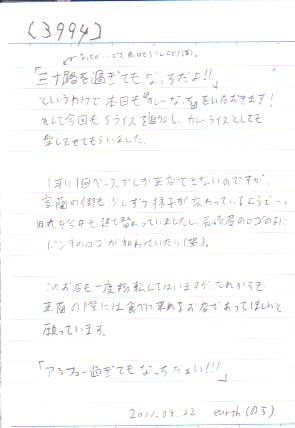 [3994]
「三十路を過ぎてもなっちだよ!!」
というわけで本日も『カレーなっ』をいただきます!
そして今回もSライスを追加し、カレーライスとしても
楽しませてもらいました。
1年に1回ペースでしか来店できないのですが、
室蘭の街も少しずつ様子が変わっているようで…
建て替わっていましたし、長崎屋のロゴのよこに
ドンキのロゴが加わっていたり(笑)。
このお店も一度移転してはいますが、これからも
室蘭の際には食べに来れるお店であってほしいと
願っています。
「アラフォー過ぎてもなっちだよい!!!」
2011.09.22 earth(の5)